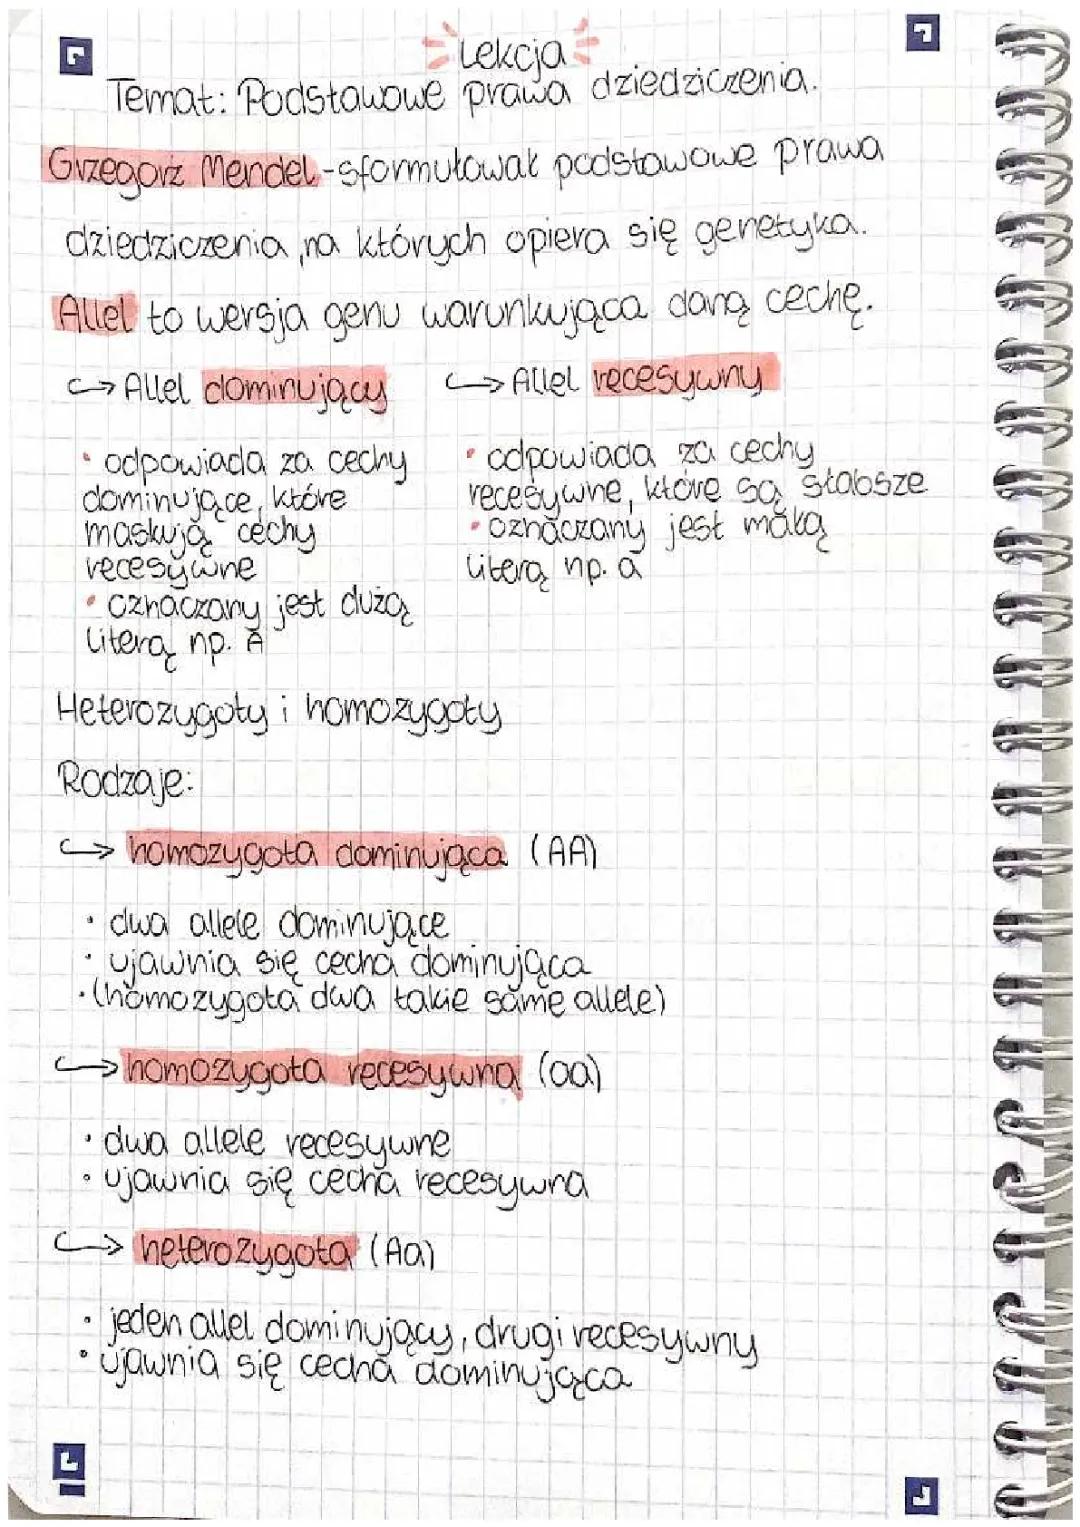 Lekcja
Temat: Podstawowe prawa dziedziczenia.
Grzegorz Mendel - sformułował podstawowe prawa
dziedziczenia, na których opiera się genetyka.
Allel to wersja genu warunkująca daną cechę.
↪ Allel dominujący
• odpowiada za cechy
dominujące, które
maskują cechy
recesywne
• oznaczany jest dużą
literą np. A
↪ Allel recesywny
• odpowiada za cechy
recesywne, które są słabsze
• oznaczany jest małą
literą np. a
Heterozygoty i homozygoty
Rodzaje:
↪ homozygota dominująca (AA)
• dwa allele dominujące
• ujawnia się cecha dominująca
• (homozygota dwa takie same allele)
↪ homozygota recesywna (aa)
• dwa allele recesywne
• ujawnia się cecha recesywna
↪ heterozygota (Aa)
• jeden allel dominujący, drugi recesywny
• ujawnia się cecha dominująca